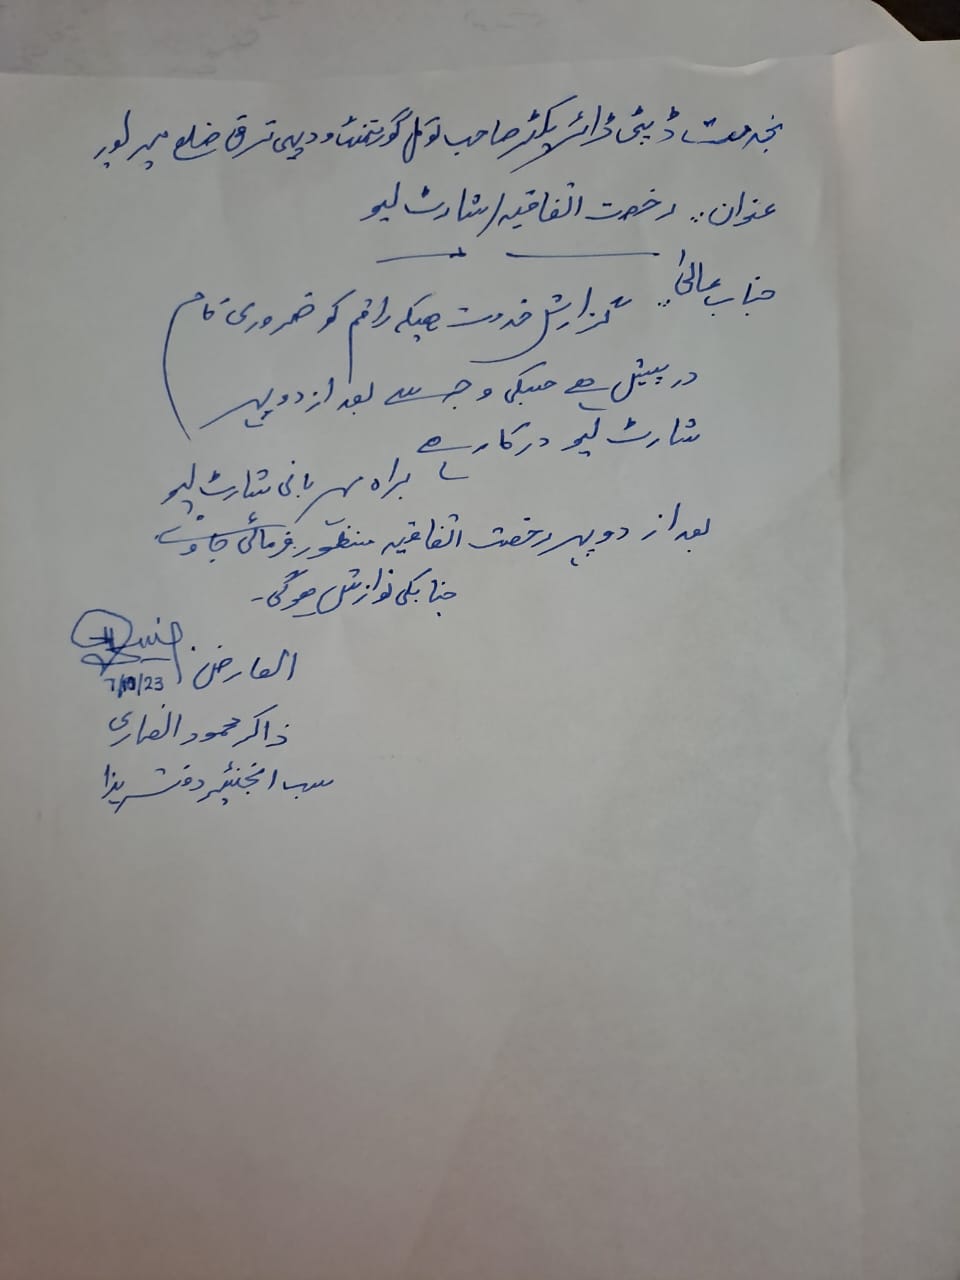 بخدمت ڈپٹی ڈائریکٹر صاحب لوکل گورنمنٹ و دیہی ترقی ضلع میرپور
عنوان:۔ رخصت اتفاقیہ/شارٹ لیو
جناب عالیٰ:۔ گزارش خدمت ھیکہ راقم کو ضروری کام
درپیش ھے جسکی وجہ سے بعد از دوپہر
شارٹ لیو درکار ھے براہ مہربانی شارٹ لیو
بعد از دوپہر رخصت اتفاقیہ منظور فرمائی جاوے
جنابکی نوازش ھوگی۔
العارض
7/10/23
ذاکر محمود انصاری
سب انجنئیر دفتر ہذا